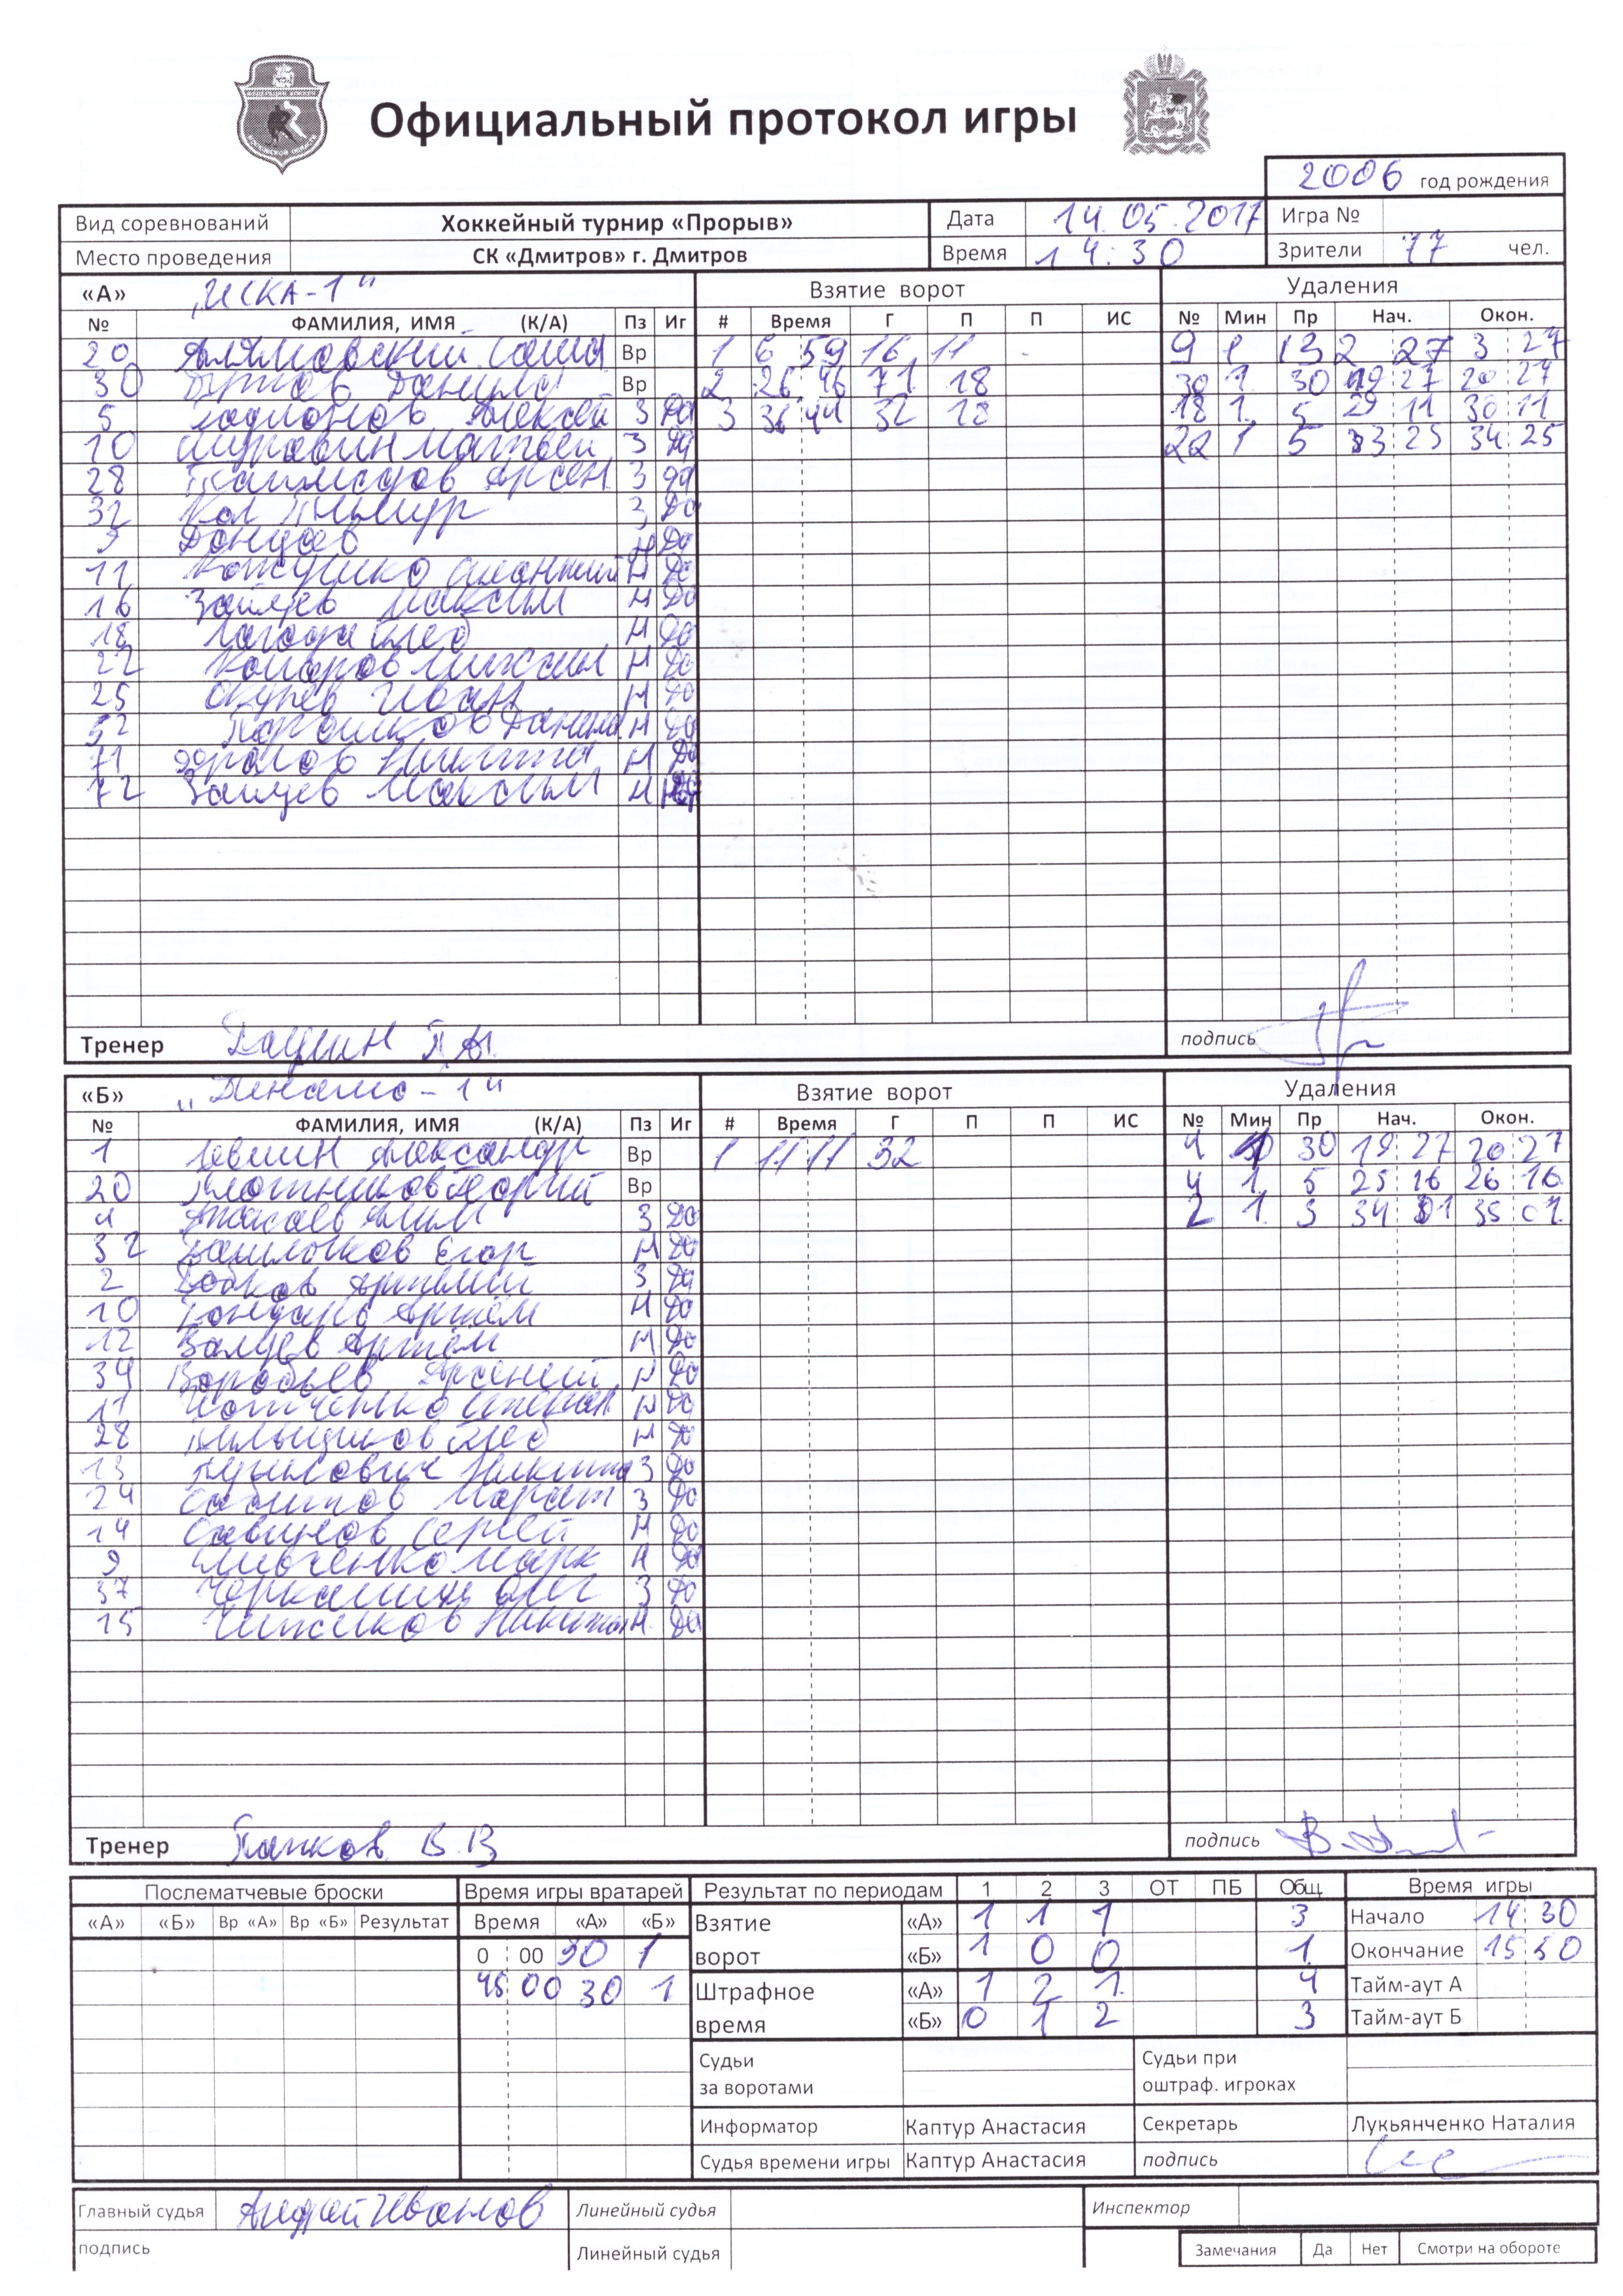 Официальный протокол игры
2006 год рождения
Вид соревнований Хоккейный турнир «Прорыв» Дата 14.05.2017 Игра №
Место проведения СК «Дмитров» г. Дмитров Время 14:30 Зрители 77 чел.
«А» "ЦСКА-1" Взятие ворот Удаления
№ ФАМИЛИЯ, ИМЯ (К/А) Пз Иг # Время Г П П ИС № Мин Пр Нач. Окон.
20 Алямовский Саша Вр 1 6 59 16 11 - 9 1 13 2 27 3 27
30 Данила Вр 2 26 46 71 18 30 1 30 19 27 20 27
5 Родионов Алексей З Да 3 36 44 32 18 18 1 5 29 11 30 11
10 Матвей З Да 22 1 5 33 25 34 25
28 Арсен З Да
32 Кол Тимур З Да
9 Донцов Н Да
11 Н Да
16 Зайцев Максим Н Да
18 Лагода Глеб Н Да
22 Комаров Н Да
25 Окунев Иван Н Да
52 Данила Н Да
71 Фролов Никита Н Да
72 Зайцев Максим Н
Тренер П.А. подпись
«Б» "Динамо-1" Взятие ворот Удаления
№ ФАМИЛИЯ, ИМЯ (К/А) Пз Иг # Время Г П П ИС № Мин Пр Нач. Окон.
1 Левшин Александр Вр 1 11 11 32 4 30 19 27 20 27
20 Плотников Георгий Вр 4 1 5 25 16 26 16
4 Алим З Да 2 1 3 34 01 35 01
32 Егор Н Да
2 Бобков Артемий З Да
10 Бондарь Артём Н Да
12 Валуев Артём Н Да
34 Воробьев Арсений Н Да
11 Степан Н Да
28 Пильщиков Глеб Н Да
13 Никита З Да
24 Сабитов Марат З Да
14 Савинов Сергей Н Да
9 Марк Н Да
37 Олег З Да
15 Чижиков Никита Н Да
Тренер Папков В.В подпись
Послематчевые броски Время игры вратарей Результат по периодам 1 2 3 ОТ ПБ Общ Время игры
«А» «Б» Вр «А» Вр «Б» Результат Время «А» «Б» Взятие «А» 1 1 1 3 Начало 14 30
0 00 30 1 ворот «Б» 1 0 0 1 Окончание 15 50
45 00 30 1 Штрафное «А» 1 2 1 4 Тайм-аут А
время «Б» 0 1 2 3 Тайм-аут Б
Судьи за воротами Судьи при оштраф. игроках
Информатор Каптур Анастасия Секретарь Лукьянченко Наталия
Судья времени игры Каптур Анастасия подпись
Главный судья Андрей Иванов Линейный судья Инспектор
подпись Линейный судья Замечания Да Нет Смотри на обороте